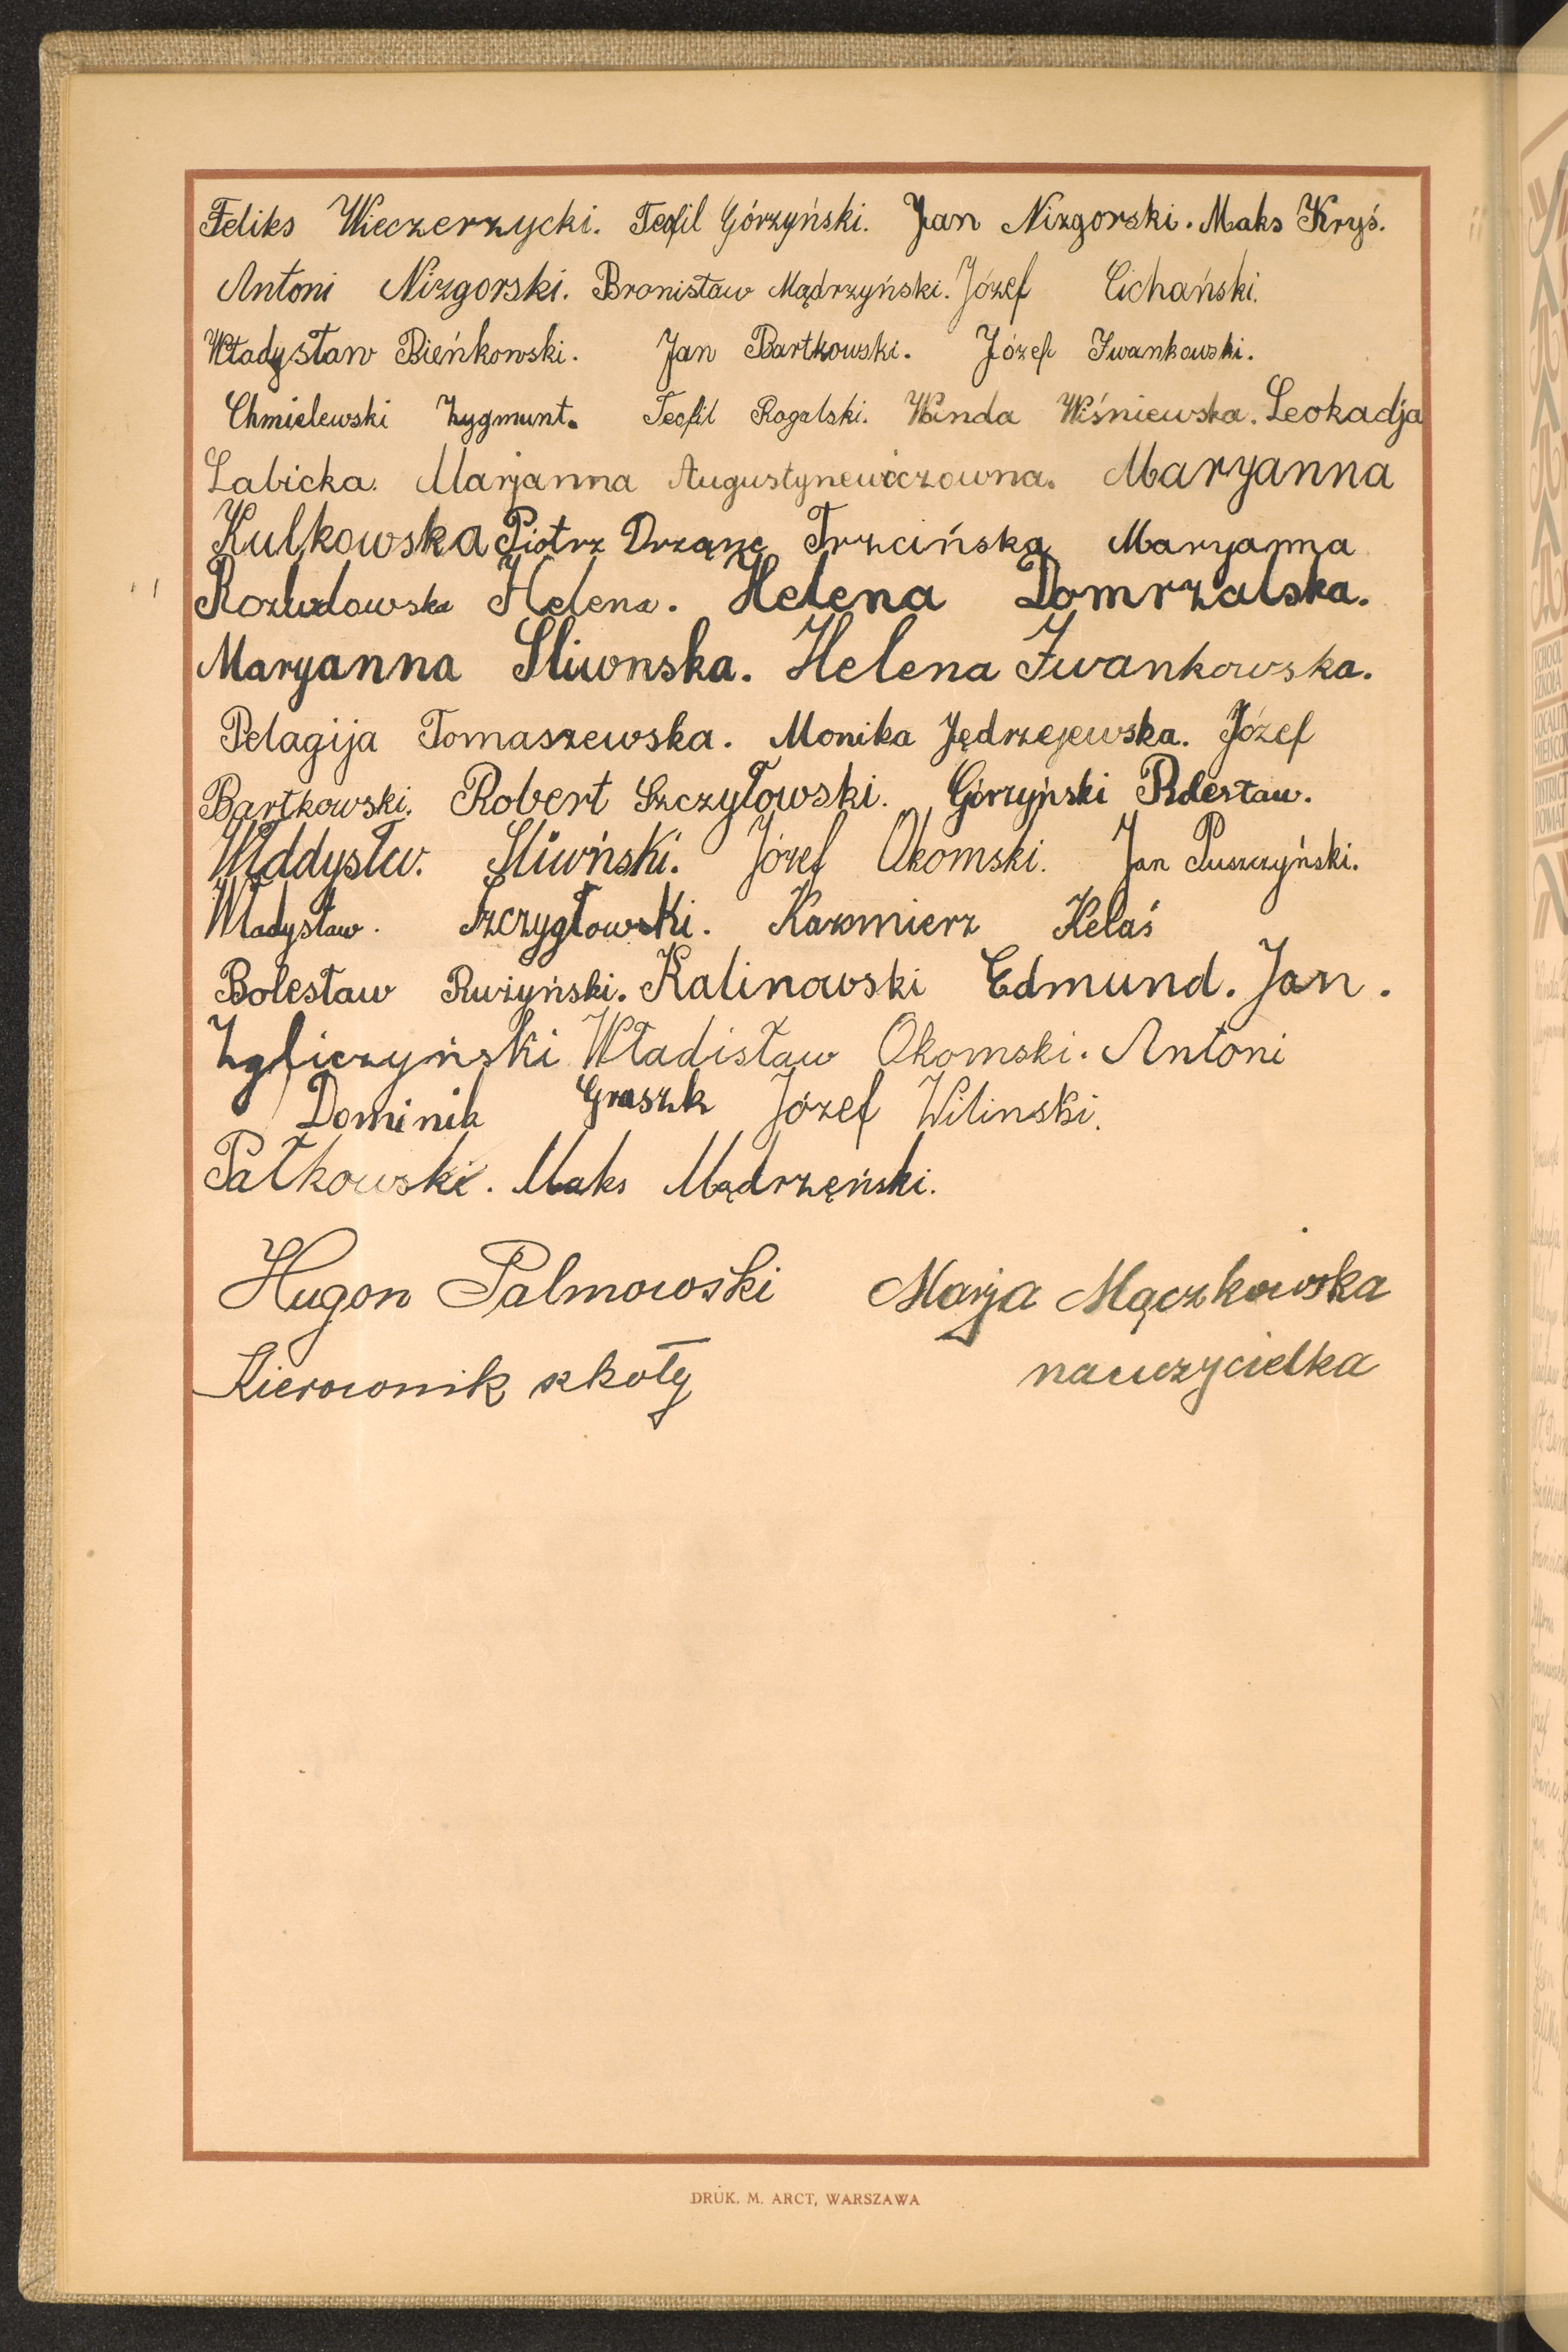 Feliks Wieczerzycki. Teofil Górzyński. Jan Nizgorski. Maks Kryś.
Antoni Nizgorski. Bronisław Mądrzyński. Józef Cichański.
Władysław Bieńkowski. Jan Bartkowski. Józef Iwankowski.
Chmielewski Zygmunt. Teofil Rogalski. Wanda Wiśniewska. Leokadja
Labicka. Marjanna Augustynewiczowna. Maryanna
Kulkowska Piotrz Drzązg Trzcińska Maryanna
Helena. Helena Domrzalska.
Maryanna Sliwnska. Helena Iwankowska.
Pelagija Tomaszewska. Monika Jędrzejewska. Józef
Bartkowski. Robert Szczyłowski. Górzyński
Sliwński. Józef Okomski. Jan Puszczyński.
Władysław. Szczygłowski. Kazmierz Kelaś
Bolesław Rużyński. Kalinowski Edmund. Jan.
Zgliczyński Władisław Okomski. Antoni
Dominik Graszk Józef Wilinski.
Pałkowski. Maks Mądrzęński.
Hugon Palmowski Marja Mączkowska
Kierownik szkoły nauczycielka
DRUK. M. ARCT, WARSZAWA